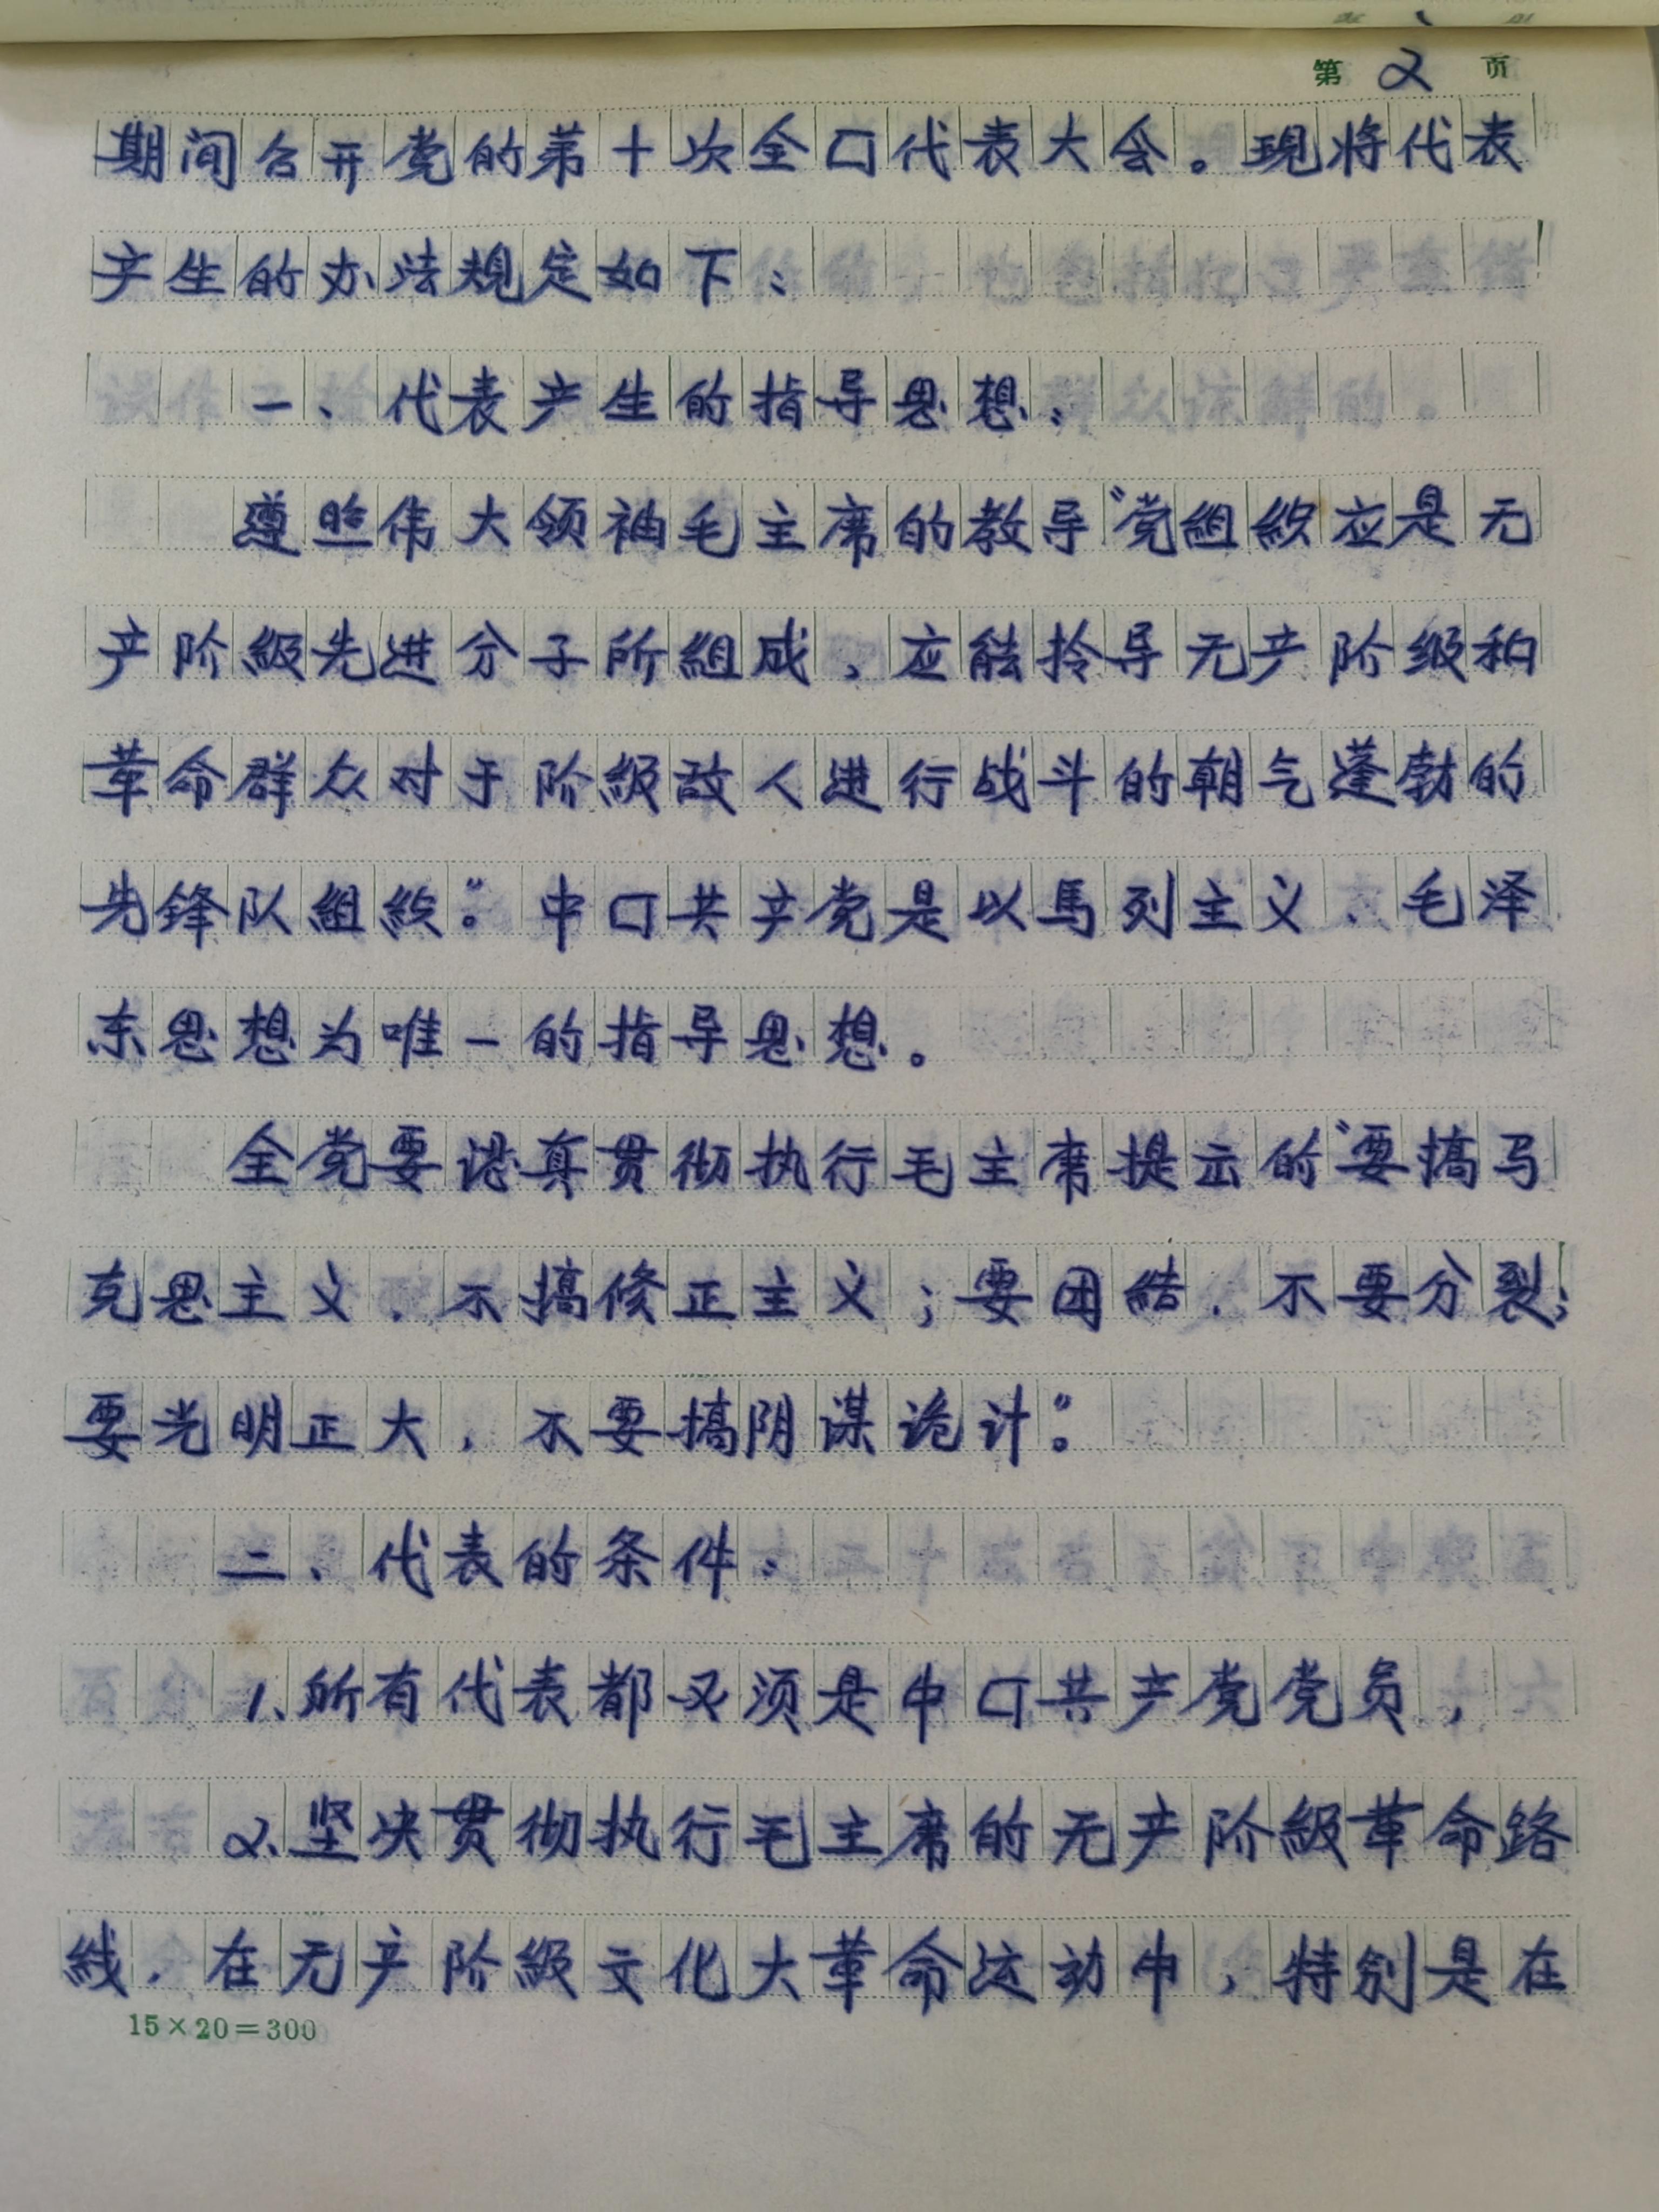 第2页
期间召开党的第十次全囗代表大会。现将代表
产生的办法规定如下：
一、代表产生的指导思想：
遵照伟大领袖毛主席的教导“党組織应是无
产阶級先进分子所組成，应能拎导无产阶级和
革命群众对于阶級敌人进行战斗的朝气蓬勃的
先锋队組織。”中囗共产党是以馬列主义、毛泽
东思想为唯一的指导思想。
全党要认真贯彻执行毛主席提出的“要搞马
克思主义，不搞修正主义；要团結，不要分裂；
要光明正大，不要搞阴谋诡计。”
二、代表的条件：
1、所有代表都必须是中囗共产党党员，
2、坚决贯彻执行毛主席的无产阶級革命路
线，在无产阶級文化大革命运动中，特别是在
15×20=300